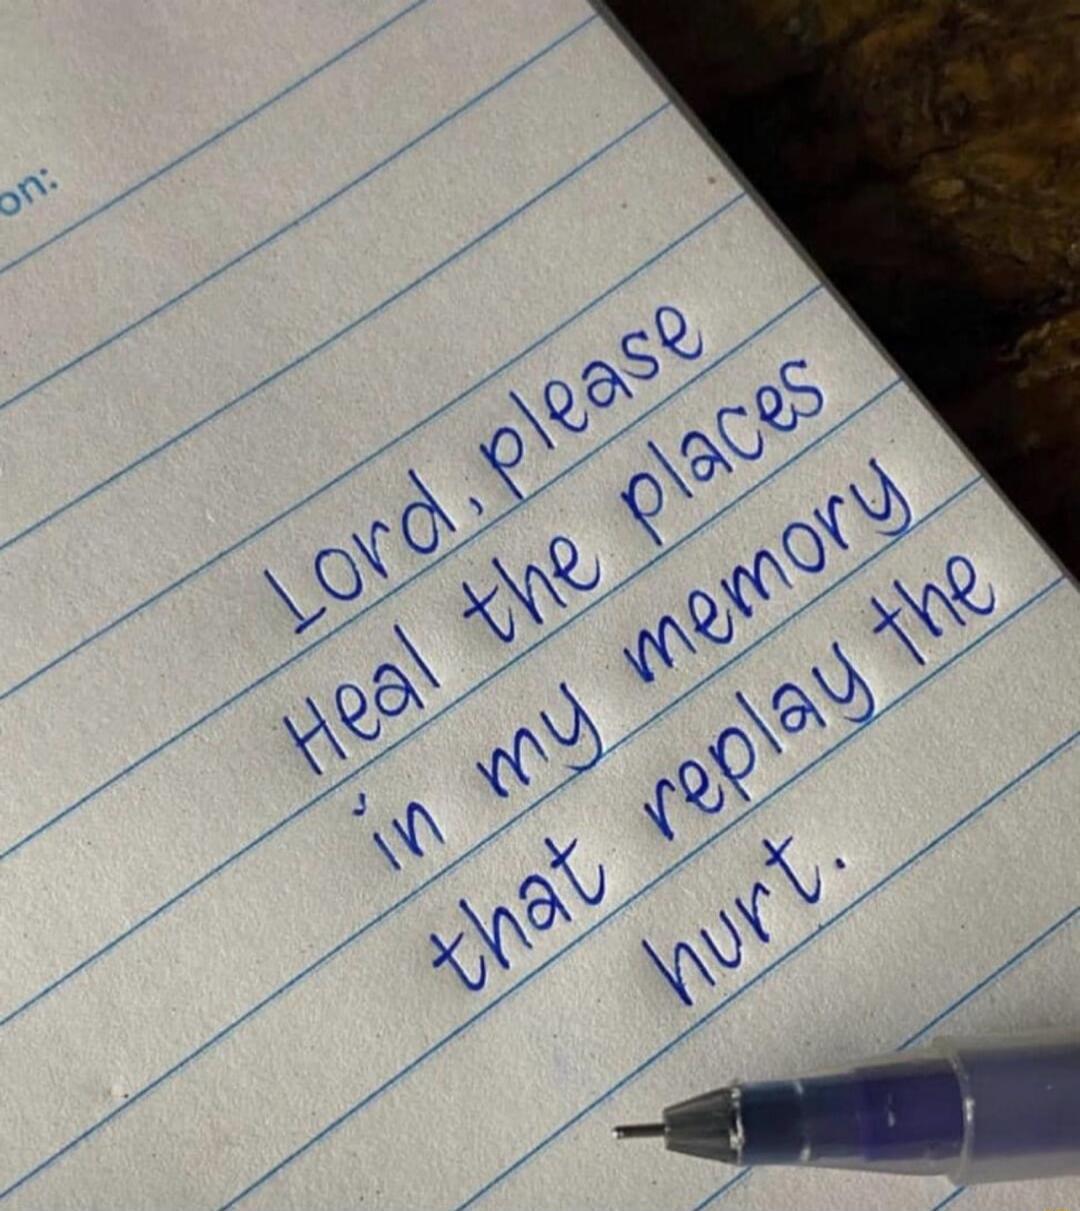 on:
Lord, please
Heal the places
in my memory
that replay the
hurt.